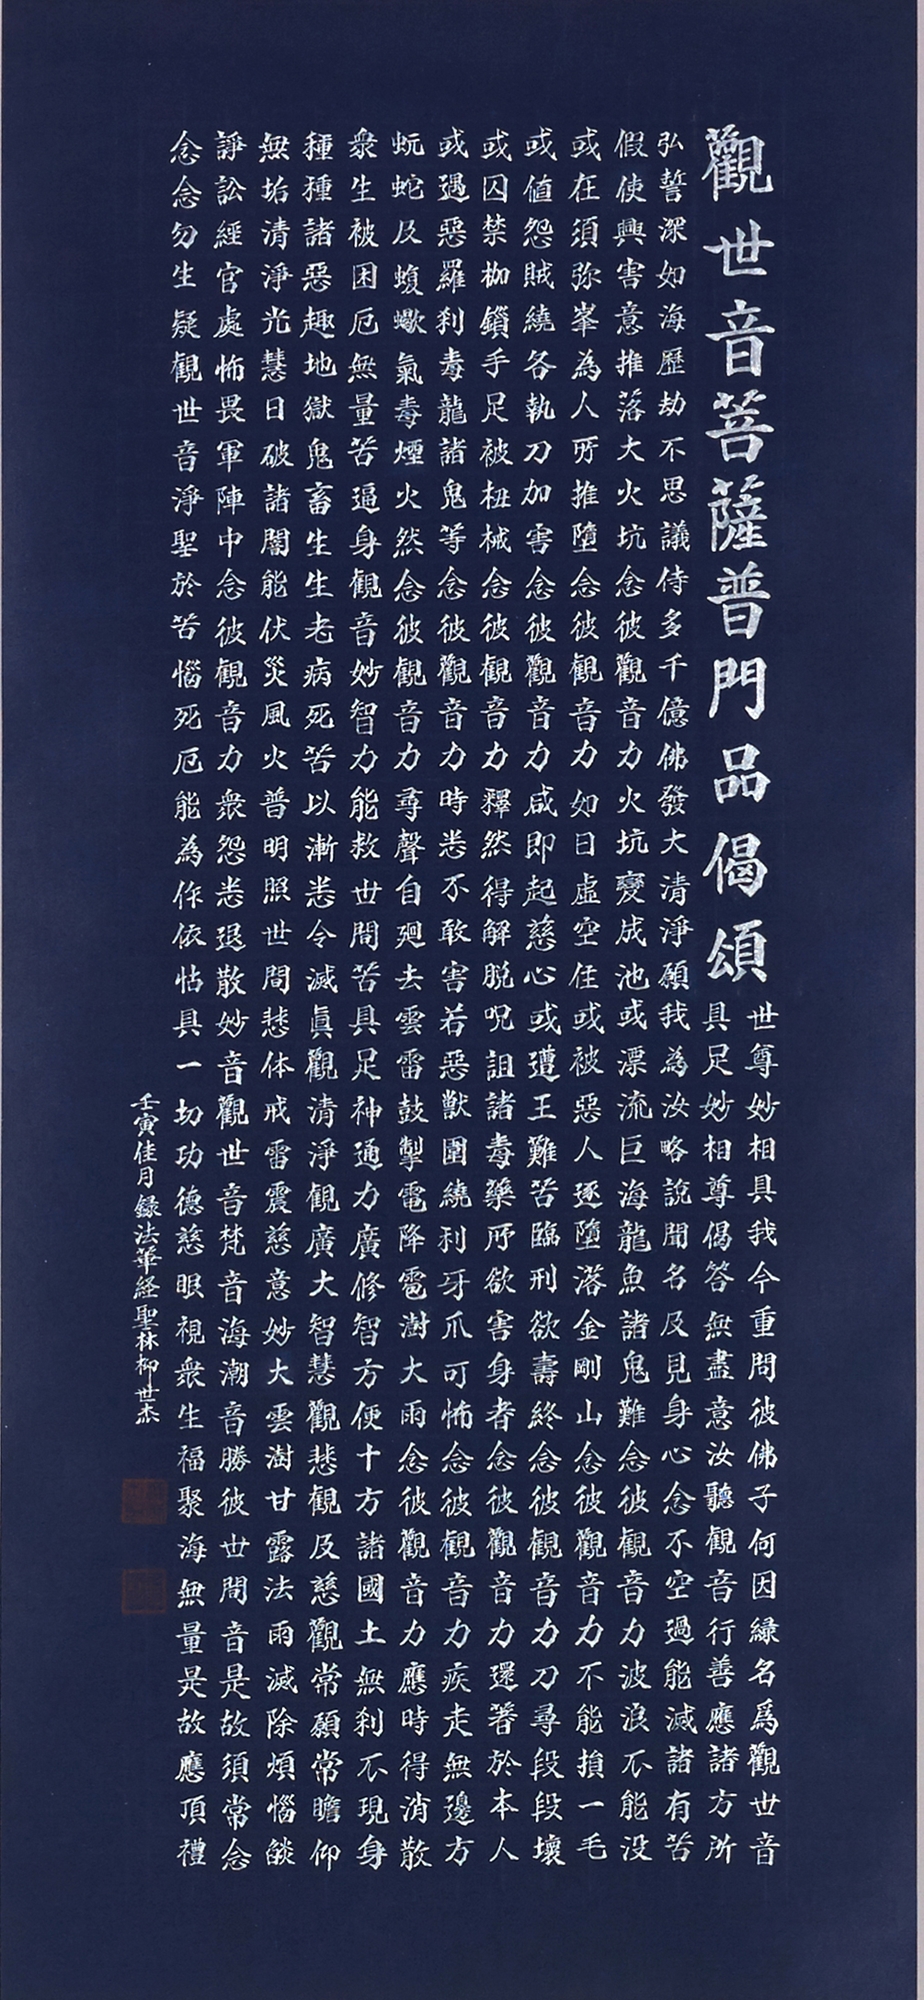 觀世音菩薩普門品偈頌
世尊妙相具我今重問彼佛子何因緣名爲觀世音
具足妙相尊偈答無盡意汝聽觀音行善應諸方所
弘誓深如海歷劫不思議侍多千億佛發大清淨願我為汝略說聞名及見身心念不空過能滅諸有苦
假使興害意推落大火坑念彼觀音力火坑變成池或漂流巨海龍魚諸鬼難念彼觀音力波浪不能没
或在須弥峯為人所推墮念彼觀音力如日虛空住或被惡人逐墮落金剛山念彼觀音力不能損一毛
或值怨賊繞各執刀加害念彼觀音力咸即起慈心或遭王難苦臨刑欲壽終念彼觀音力刀尋段段壞
或囚禁枷鎖手足被杻械念彼觀音力釋然得解脱呪詛諸毒藥所欲害身者念彼觀音力還著於本人
或遇惡羅刹毒龍諸鬼等念彼觀音力時悉不敢害若惡獸圍繞利牙爪可怖念彼觀音力疾走無邊方
蚖蛇及蝮蠍氣毒煙火然念彼觀音力尋聲自迴去雲雷鼓掣電降雹澍大雨念彼觀音力應時得消散
衆生被困厄無量苦逼身觀音妙智力能救世間苦具足神通力廣修智方便十方諸國土無刹不現身
種種諸惡趣地獄鬼畜生生老病死苦以漸悉令滅眞觀清淨觀廣大智慧觀悲觀及慈觀常願常瞻仰
無垢清淨光慧日破諸闇能伏災風火普明照世間悲体戒雷震慈意妙大雲澍甘露法雨滅除煩惱燄
諍訟經官處怖畏軍陣中念彼觀音力衆怨悉退散妙音觀世音梵音海潮音勝彼世間音是故須常念
念念勿生疑觀世音淨聖於苦惱死厄能為作依怙具一切功德慈眼視衆生福聚海無量是故應頂禮
壬寅佳月録法華経聖林柳世杰